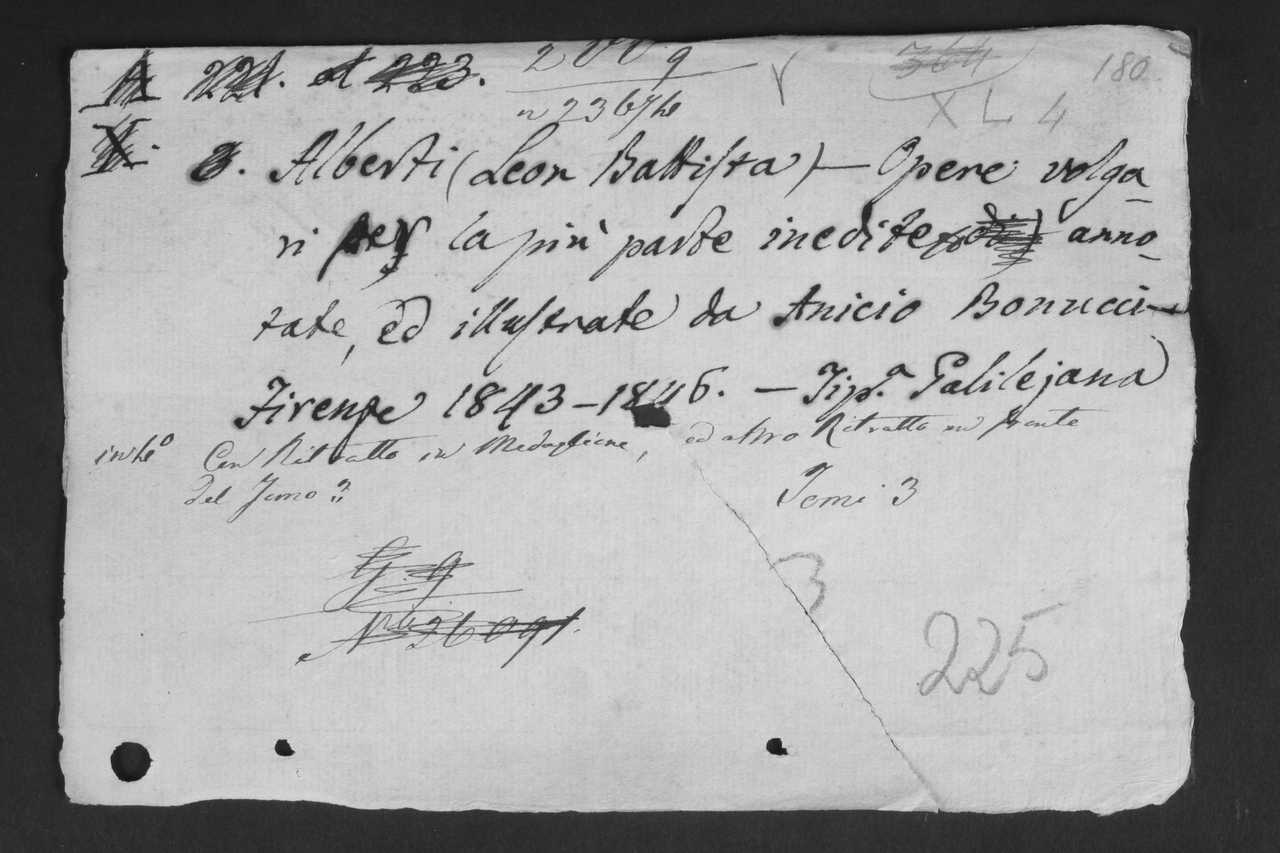 221. et 223.
2009
364
180
n 236/he
XL 4
8. Alberti (Leon Battista) — Opere volga-
ri per la più parte inedite, anno-
tate, ed illustrate da Anicio Bonucci —
Firenze 1843-1846. — Tip.ª Galilejana
in he° Con Ritratto in Medaglione, ed altro Ritratto in fronte
del Tomo 3
Tomi 3
G. 9
3
N° 26091.
225